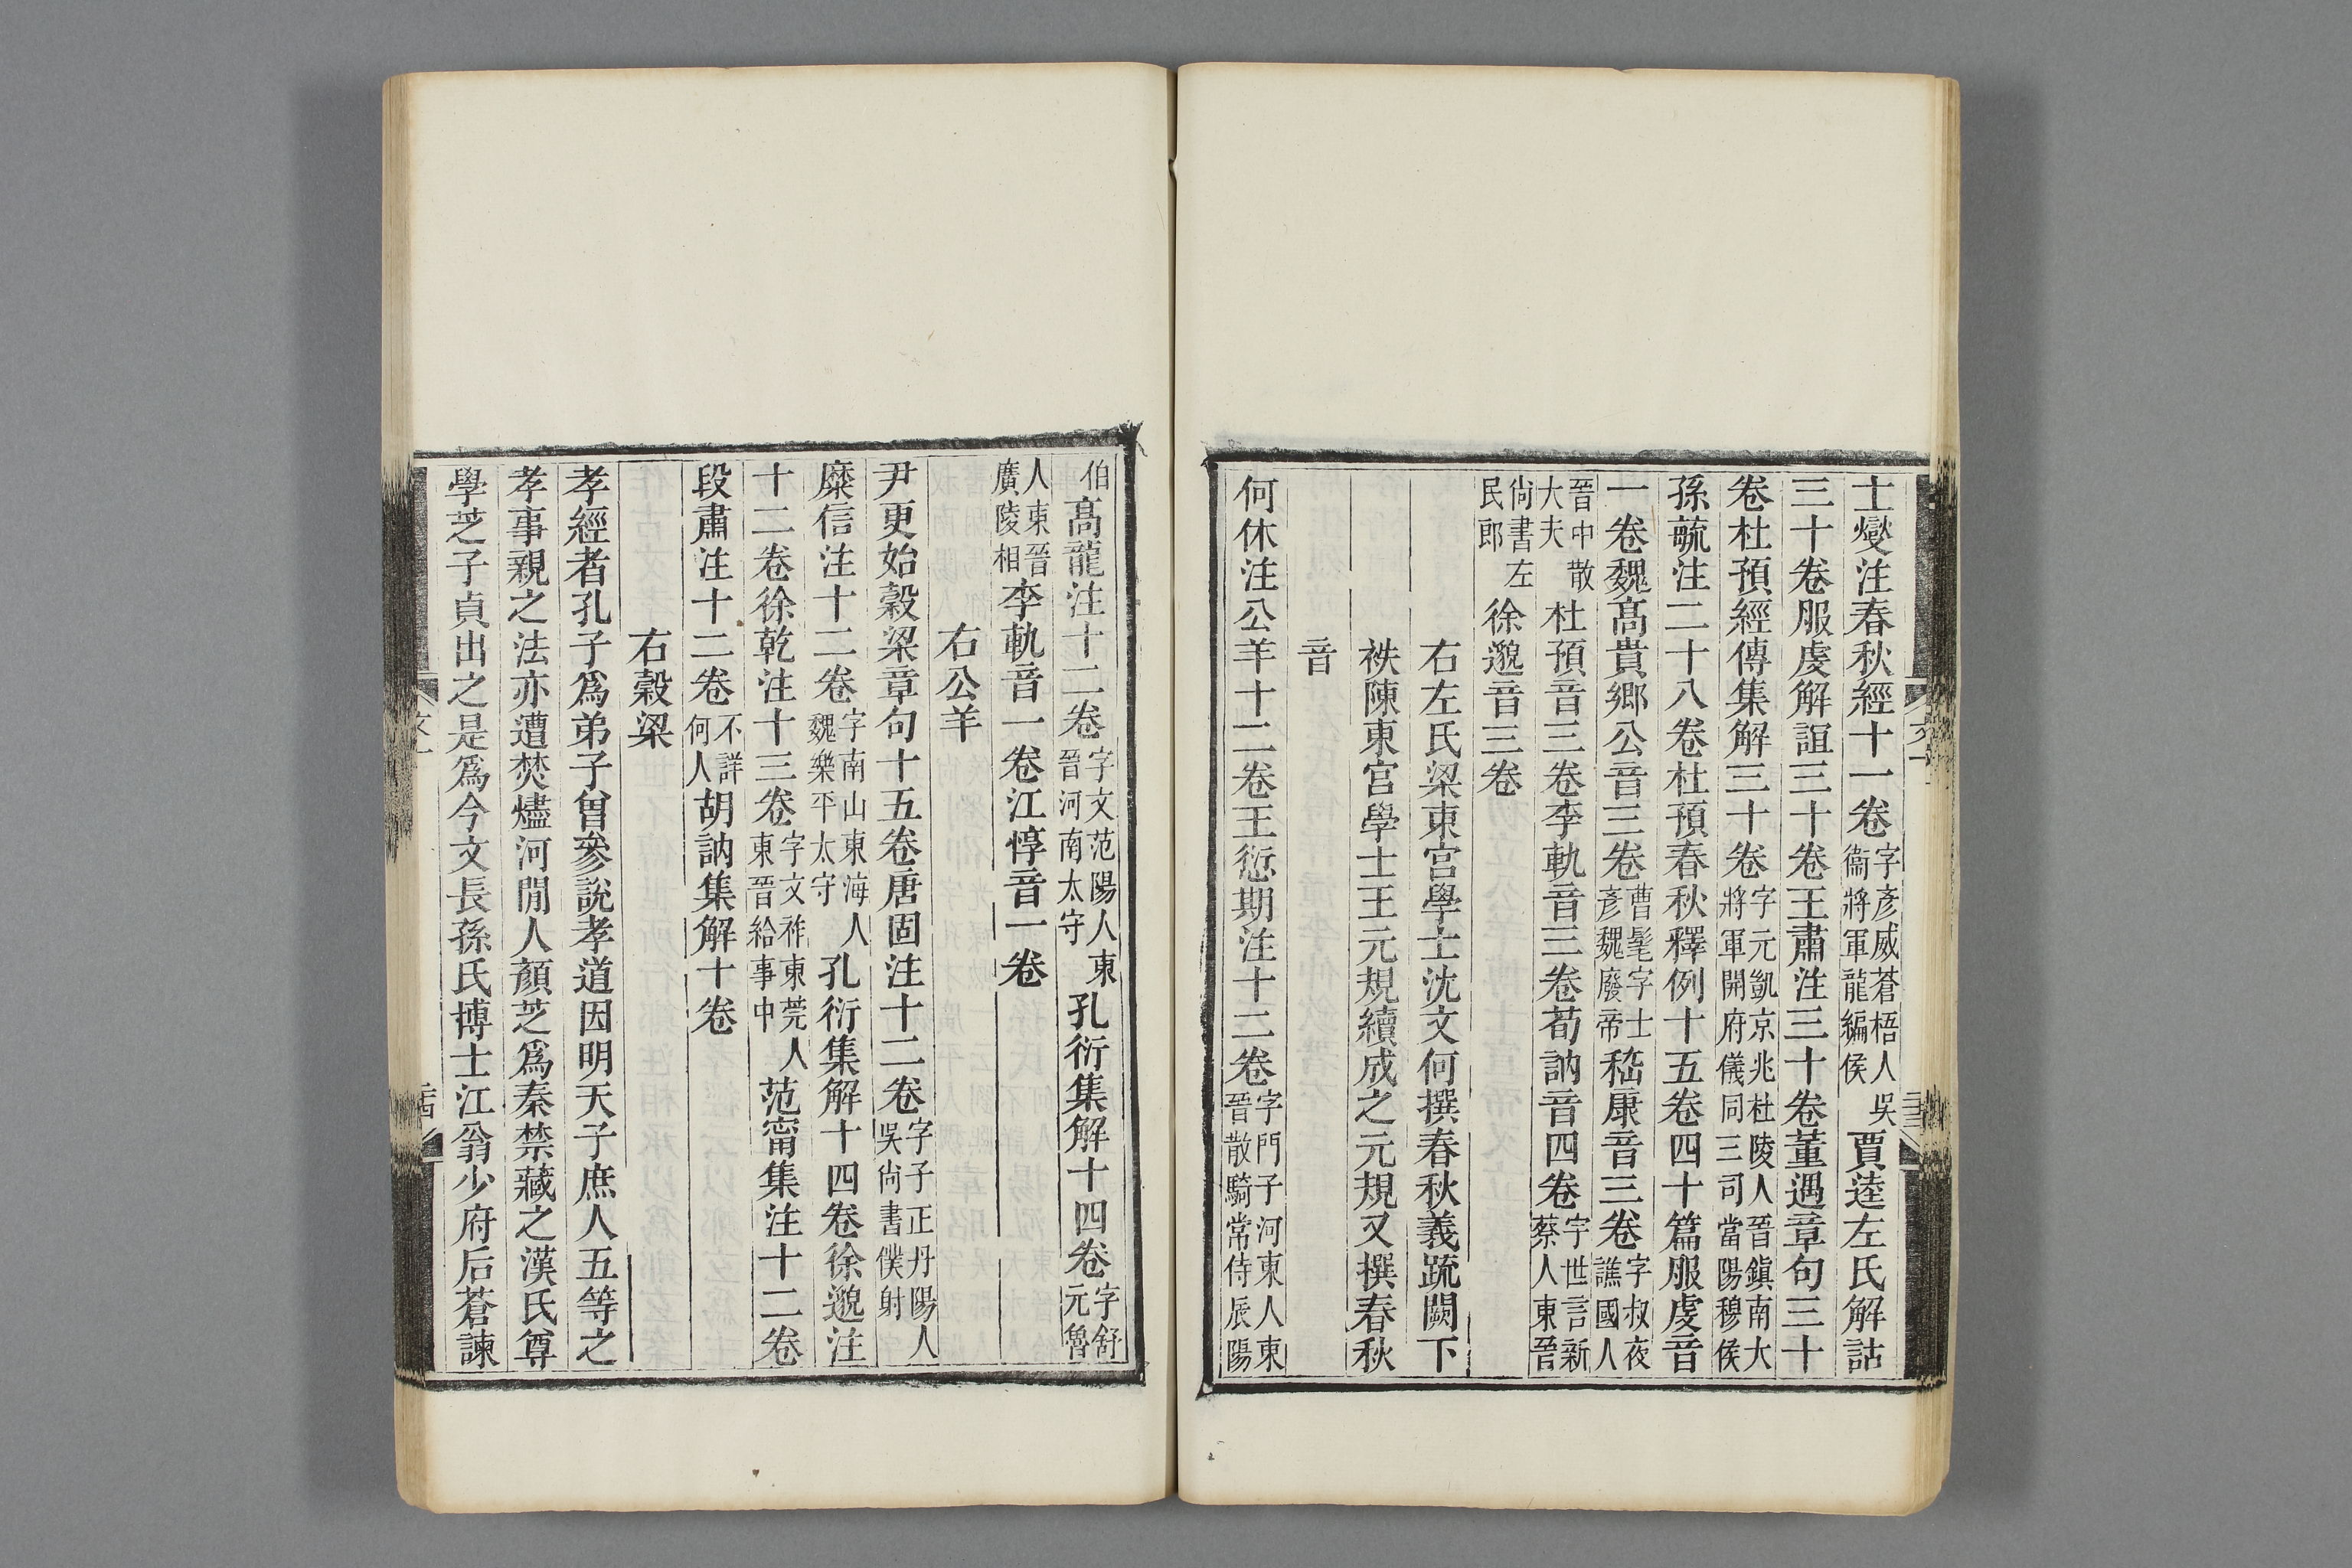 士燮注春秋經十一卷字彥威蒼梧人吳衞將軍龍編侯賈逵左氏解詁
三十卷服虔解誼三十卷王肅注三十卷董遇章句三十
卷杜預經傳集解三十卷字元凱京兆杜陵人晉鎭南大將軍開府儀同三司當陽穆侯
孫毓注二十八卷杜預春秋釋例十五卷四十篇服虔音
一卷魏髙貴鄉公音三卷曹髦字士彥魏廢帝嵇康音三卷字叔夜譙國人
晉中散大夫杜預音三卷李軌音三卷荀訥音四卷字世言新蔡人東晉
尚書左民郎徐邈音三卷
右左氏梁東宮學士沈文何撰春秋義䟽闕下
袟陳東宮學士王元規續成之元規又撰春秋
音
何休注公羊十二卷王愆期注十二卷字門子河東人東晉散騎常侍辰陽
伯髙龍注十二卷字文范陽人東晉河南太守孔衍集解十四卷字舒元魯
人東晉廣陵相李軌音一卷江惇音一卷
右公羊
尹更始穀梁章句十五卷唐固注十二卷字子正丹陽人吳尚書僕射
糜信注十二卷字南山東海人魏樂平太守孔衍集解十四卷徐邈注
十二卷徐乾注十三卷字文祚東莞人東晉給事中范甯集注十二卷
段肅注十二卷不詳何人胡訥集解十卷
右穀梁
孝經者孔子爲弟子曾參說孝道因明天子庶人五等之
孝事親之法亦遭焚燼河閒人顏芝爲秦禁藏之漢氏尊
學芝子貞出之是爲今文長孫氏博士江翁少府后蒼諫